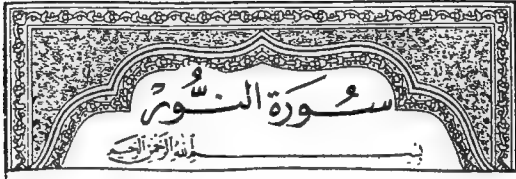 سُورَةُ النُّورِ
بِسْمِ اللَّهِ الرَّحْمَٰنِ الرَّحِيمِ